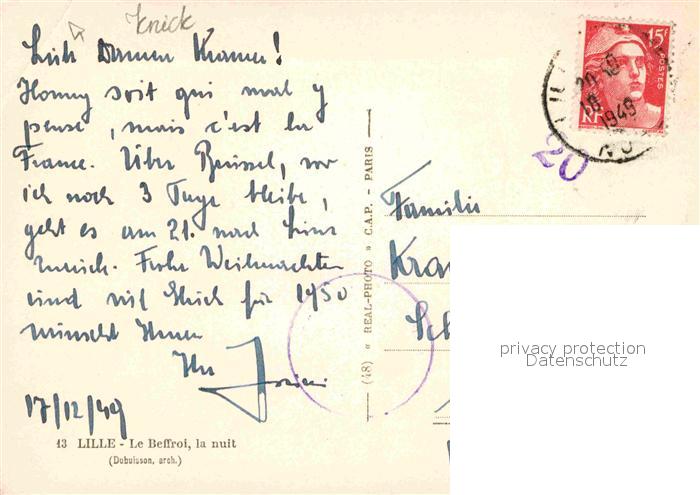 Knick
Liebe Damen Kramer!
Honny soit qui mal y
pense, mais c'est la
France. Über Brüssel, wo
ich noch 3 Tage bleibe,
geht es am 21. nach Linz
zurück. Frohe Weihnachten
und viel Glück für 1950
wünscht Ihnen
Ihr
17/12/49
13 LILLE - Le Beffroi, la nuit
(Dubuisson, arch.)
(48) « REAL-PHOTO » C.A.P. - PARIS
15F
POSTES
RF
1949
20
Familie
privacy protection
Datenschutz